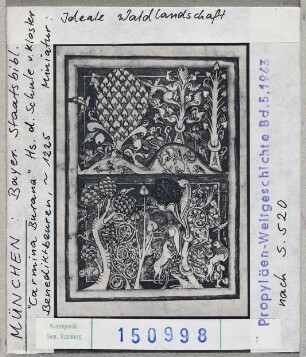 MÜNCHEN: Bayer. Staatsbibl.
"Carmina Burana" Hs. d. Schule v. Kloster
Benediktbeuren, ~ 1225 Miniatur:
Ideale Waldlandschaft
Propyläen-Weltgeschichte Bd.5, 1963
nach S. 520
Kunstgesch.
Sem. Hamburg
150998